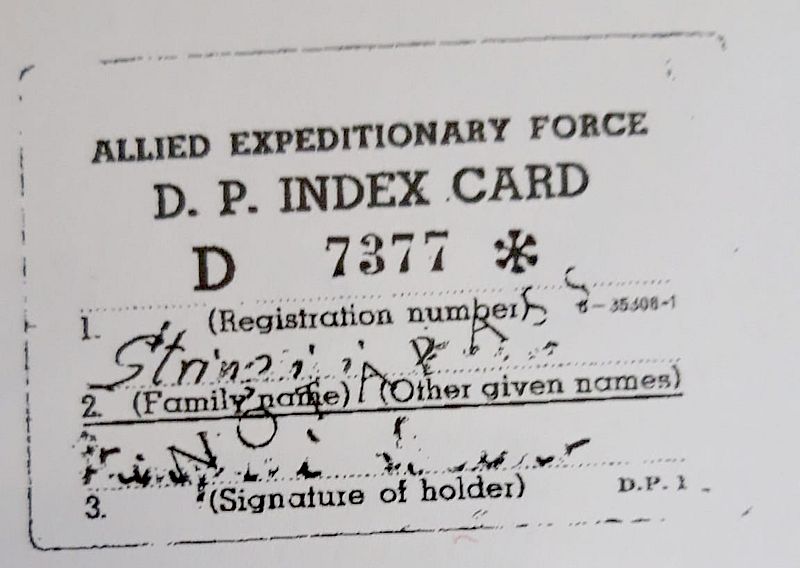 ALLIED EXPEDITIONARY FORCE
D. P. INDEX CARD
D 7377 *
1. (Registration number) 8—35408-1
2. (Family name) (Other given names)
3. (Signature of holder) D.P. 1